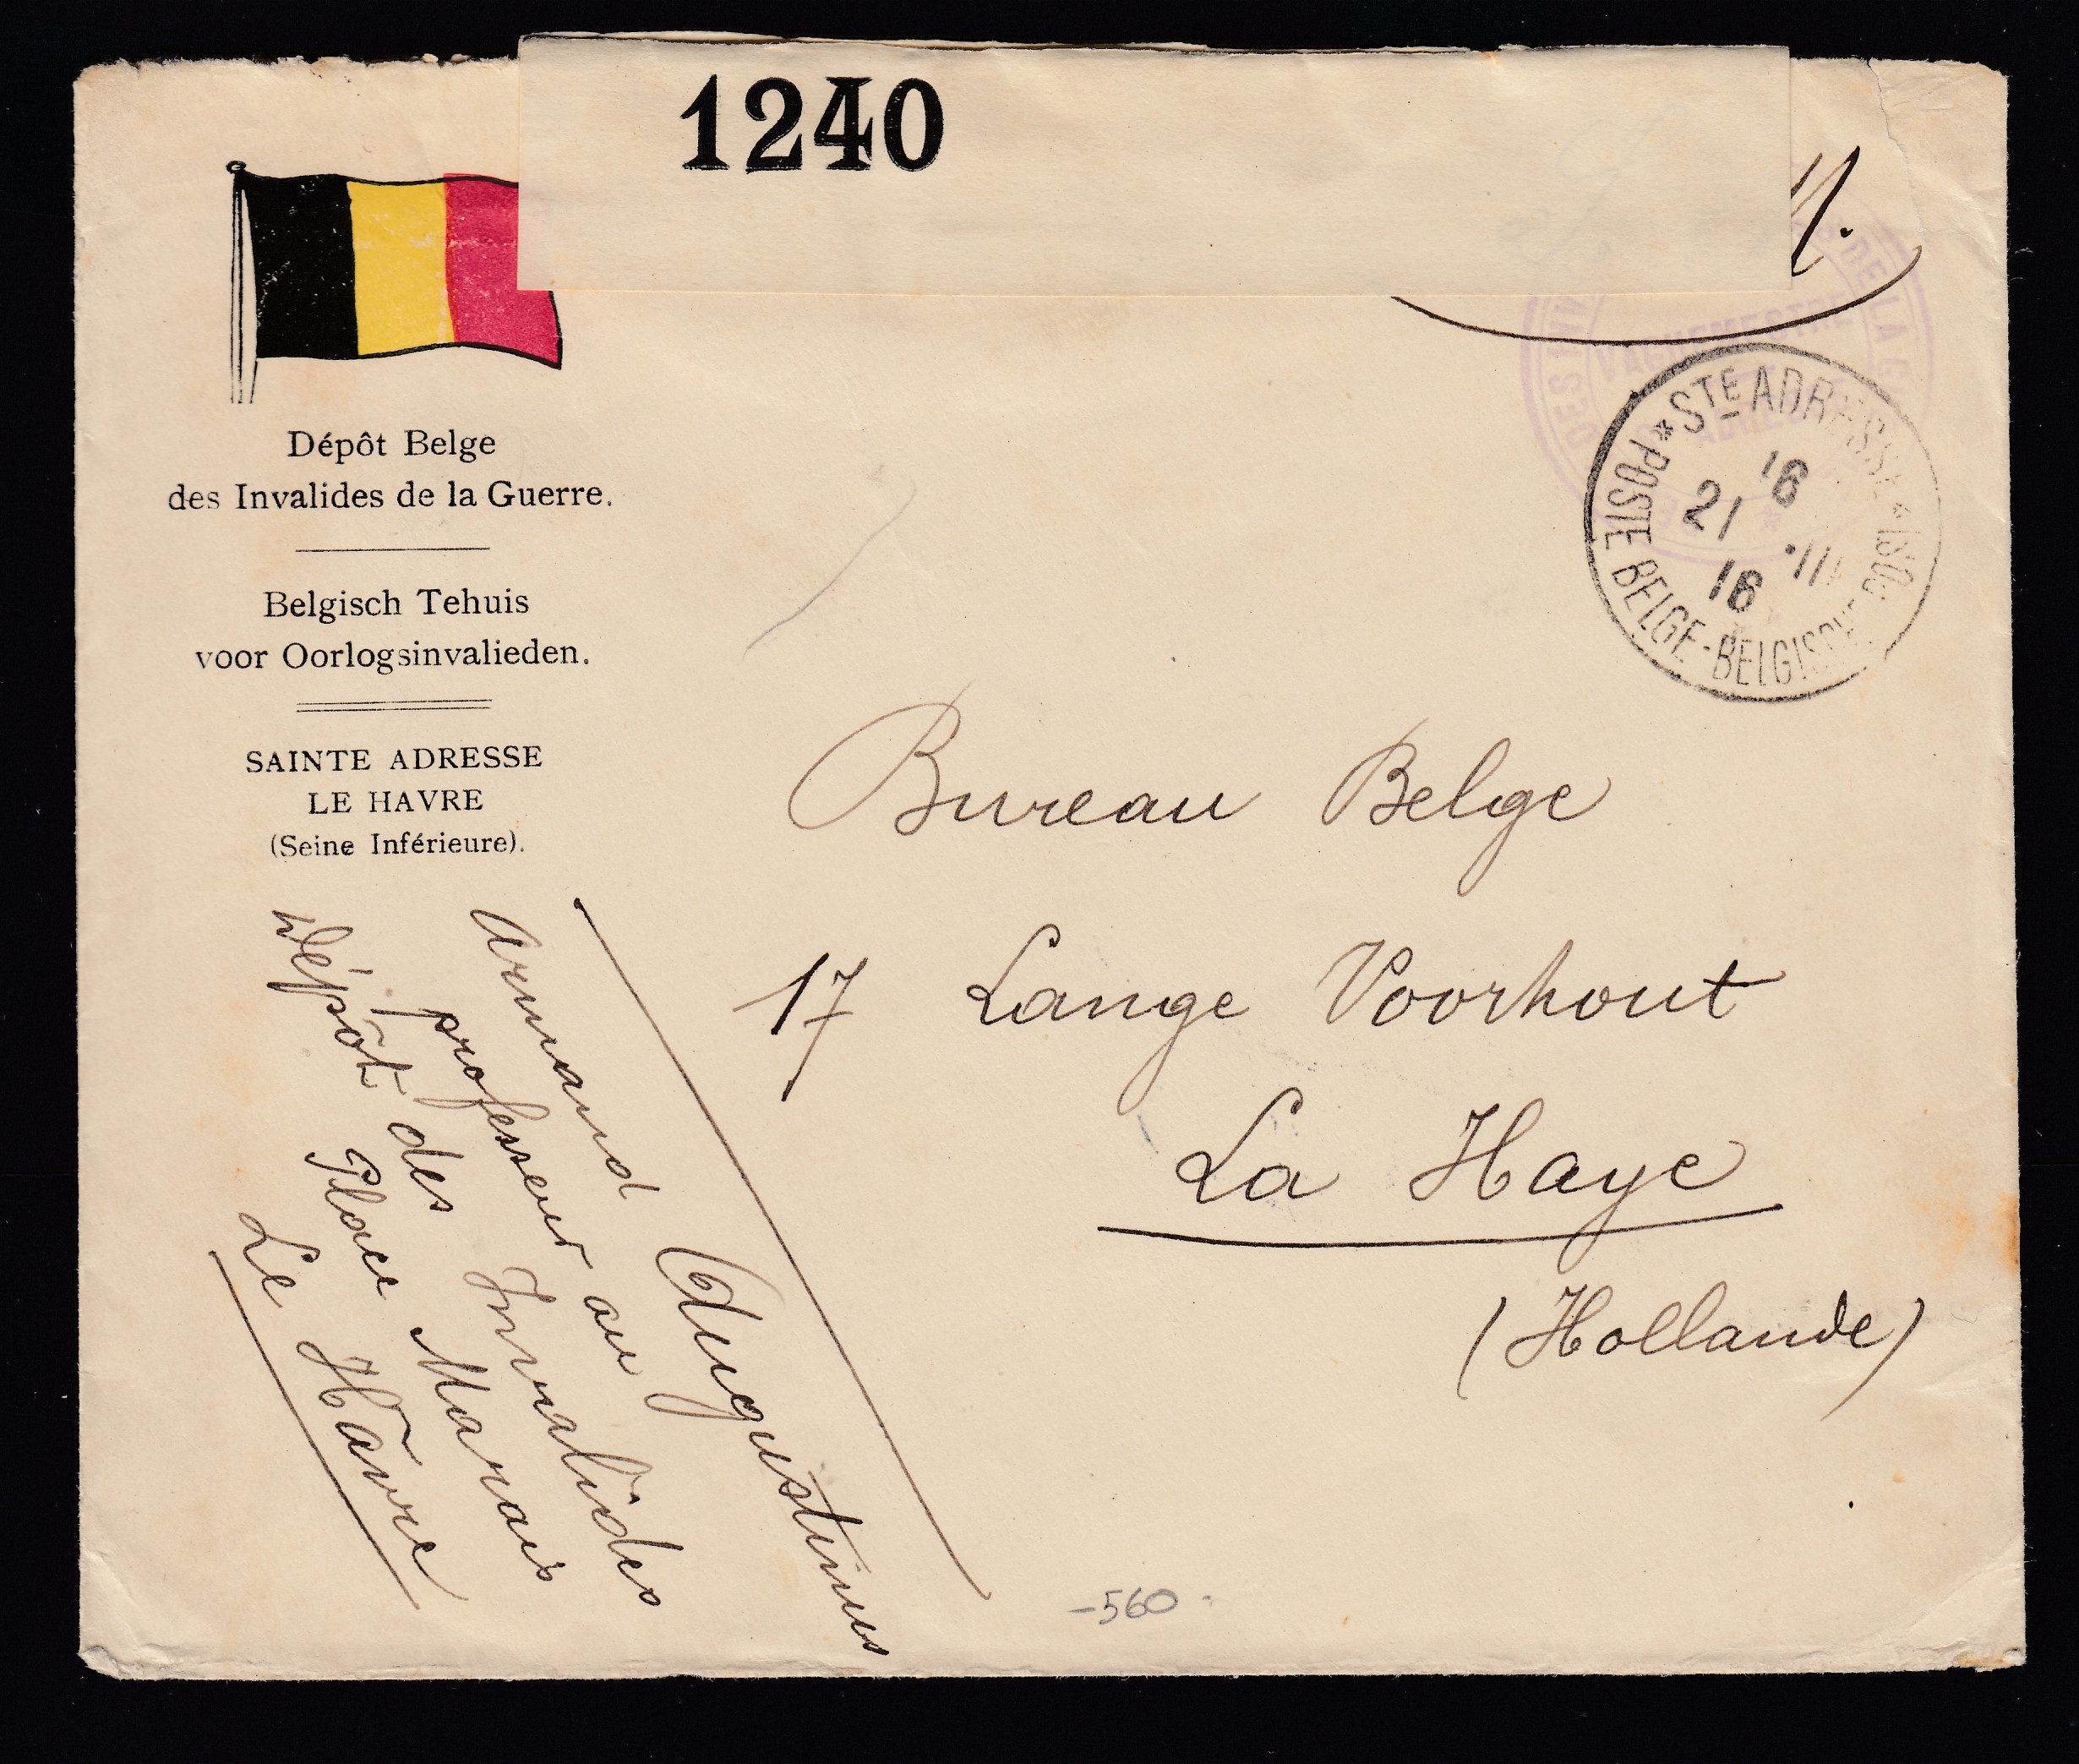 1240
Dépôt Belge
des Invalides de la Guerre.
Belgisch Tehuis
voor Oorlogsinvalieden.
SAINTE ADRESSE
LE HAVRE
(Seine Inférieure).
DES INV DE LA G
VAGUEMESTRE
* STE ADRESSE * POSTE BELGE-BELGISCHE
16
21 ·III
16
Bureau Belge
17 Lange Voorhout
La Haye
(Hollande)
Armand Augustinus
professeur au
Dépôt des Invalides
Place Marais
Le Hâvre
-560